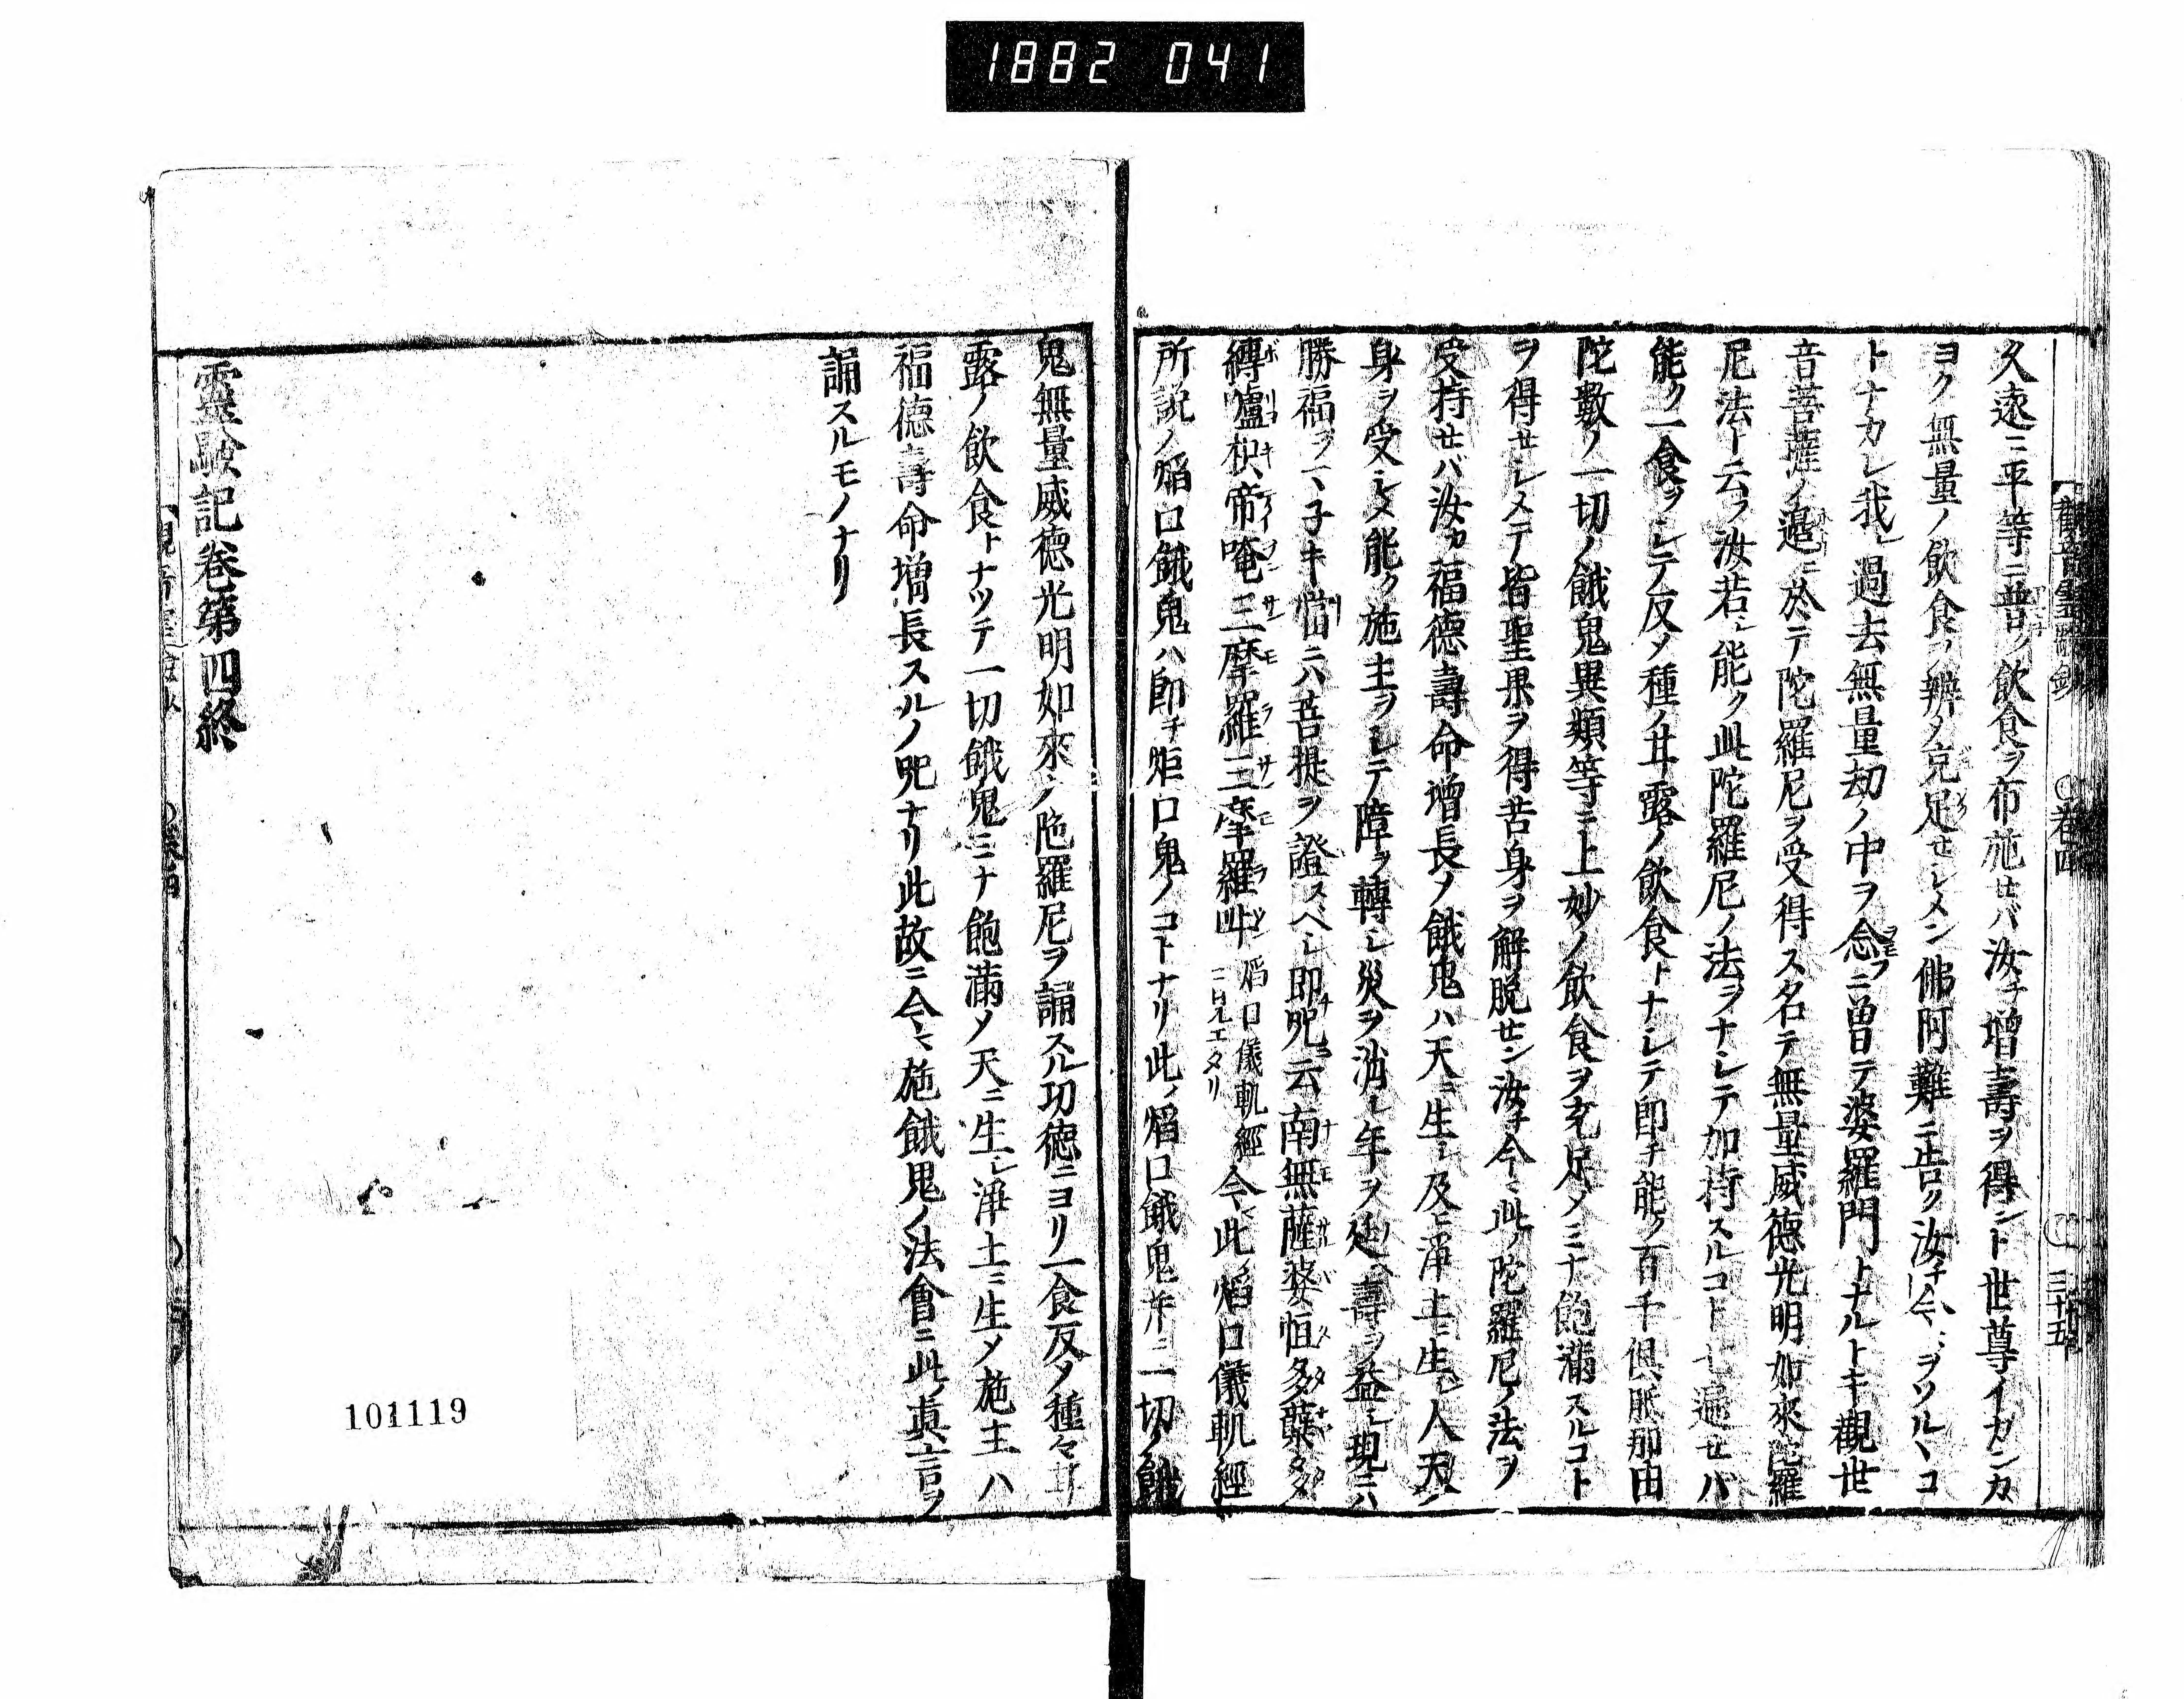 1882 041
久遠ニ平等ニ普ク飲食ヲ布施セバ汝チ増壽ヲ得ント世尊イカンカ
ヨク無量ノ飲食ヲ辨メ充足セシメン佛阿難ニ告ク汝チ今マヲソルヽコ
トナカレ我レ過去無量劫ノ中ヲ念フニ曽テ婆羅門トナルトキ觀世
音菩薩ノ邉ニ於テ陀羅尼ヲ受得ス名テ無量威徳光明如來陀羅
尼法ト云フ汝若シ能ク此陀羅尼ノ法ヲナシテ加持スルコト七遍セバ
能ク一食ヲシテ反メ種ノ甘露ノ飲食トナシテ即チ能ク百千倶胝那由
陀數ノ一切ノ餓鬼異類等ニ上妙ノ飲食ヲ充足メミナ飽滿スルコト
ヲ得セシメテ皆聖果ヲ得苦身ヲ解脱セン汝チ今マ此ノ陀羅尼ノ法ヲ
受持セバ汝カ福德壽命增長ノ餓鬼ハ天ニ生シ及ヒ淨土ニ生シ人天ノ
身ヲ受シメ能ク施主ヲシテ障ヲ轉シ災ヲ消シ年ヲ延ヘ壽ヲ益シ現ニハ
勝福ヲマ子キ當ニハ菩提ヲ證スベシ即チ咒云南無薩婆怛多蘖多
縛嚧枳帝唵三摩羅三摩羅吽 焔口儀軌經ニ見エタリ 今マ此ノ焔口儀軌經
所説ノ焔口餓鬼ハ即チ炬口鬼ノコトナリ此ノ焔口餓鬼并ニ一切ノ餓
觀音靈驗鈔 ○卷四 三十五
鬼無量威德光明如來ノ陁羅尼ヲ誦スル功徳ニヨリ一食反メ種々甘
露ノ飲食トナツテ一切餓鬼ミナ飽滿メ天ニ生シ淨土ニ生メ施主ハ
福德壽命增長スルノ咒ナリ此故ニ今マ施餓鬼ノ法會ニ此ノ眞言ヲ
誦スルモノナリ
靈驗記卷第四終
101119